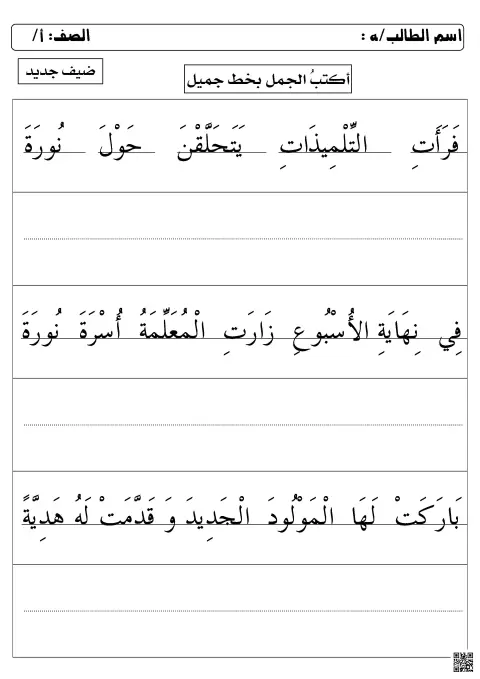 اسم الطالب/ه : الصف: أ/
ضيف جديد
أكتبُ الجمل بخط جميل
فَرَأَتِ التِّلْمِيذَاتِ يَتَحَلَّقْنَ حَوْلَ نُورَةَ
فِي نِهَايَةِ الأُسْبُوعِ زَارَتِ الْمُعَلِّمَةُ أُسْرَةَ نُورَةَ
بَارَكَتْ لَهَا الْمَوْلُودَ الْجَدِيدَ وَ قَدَّمَتْ لَهُ هَدِيَّةً